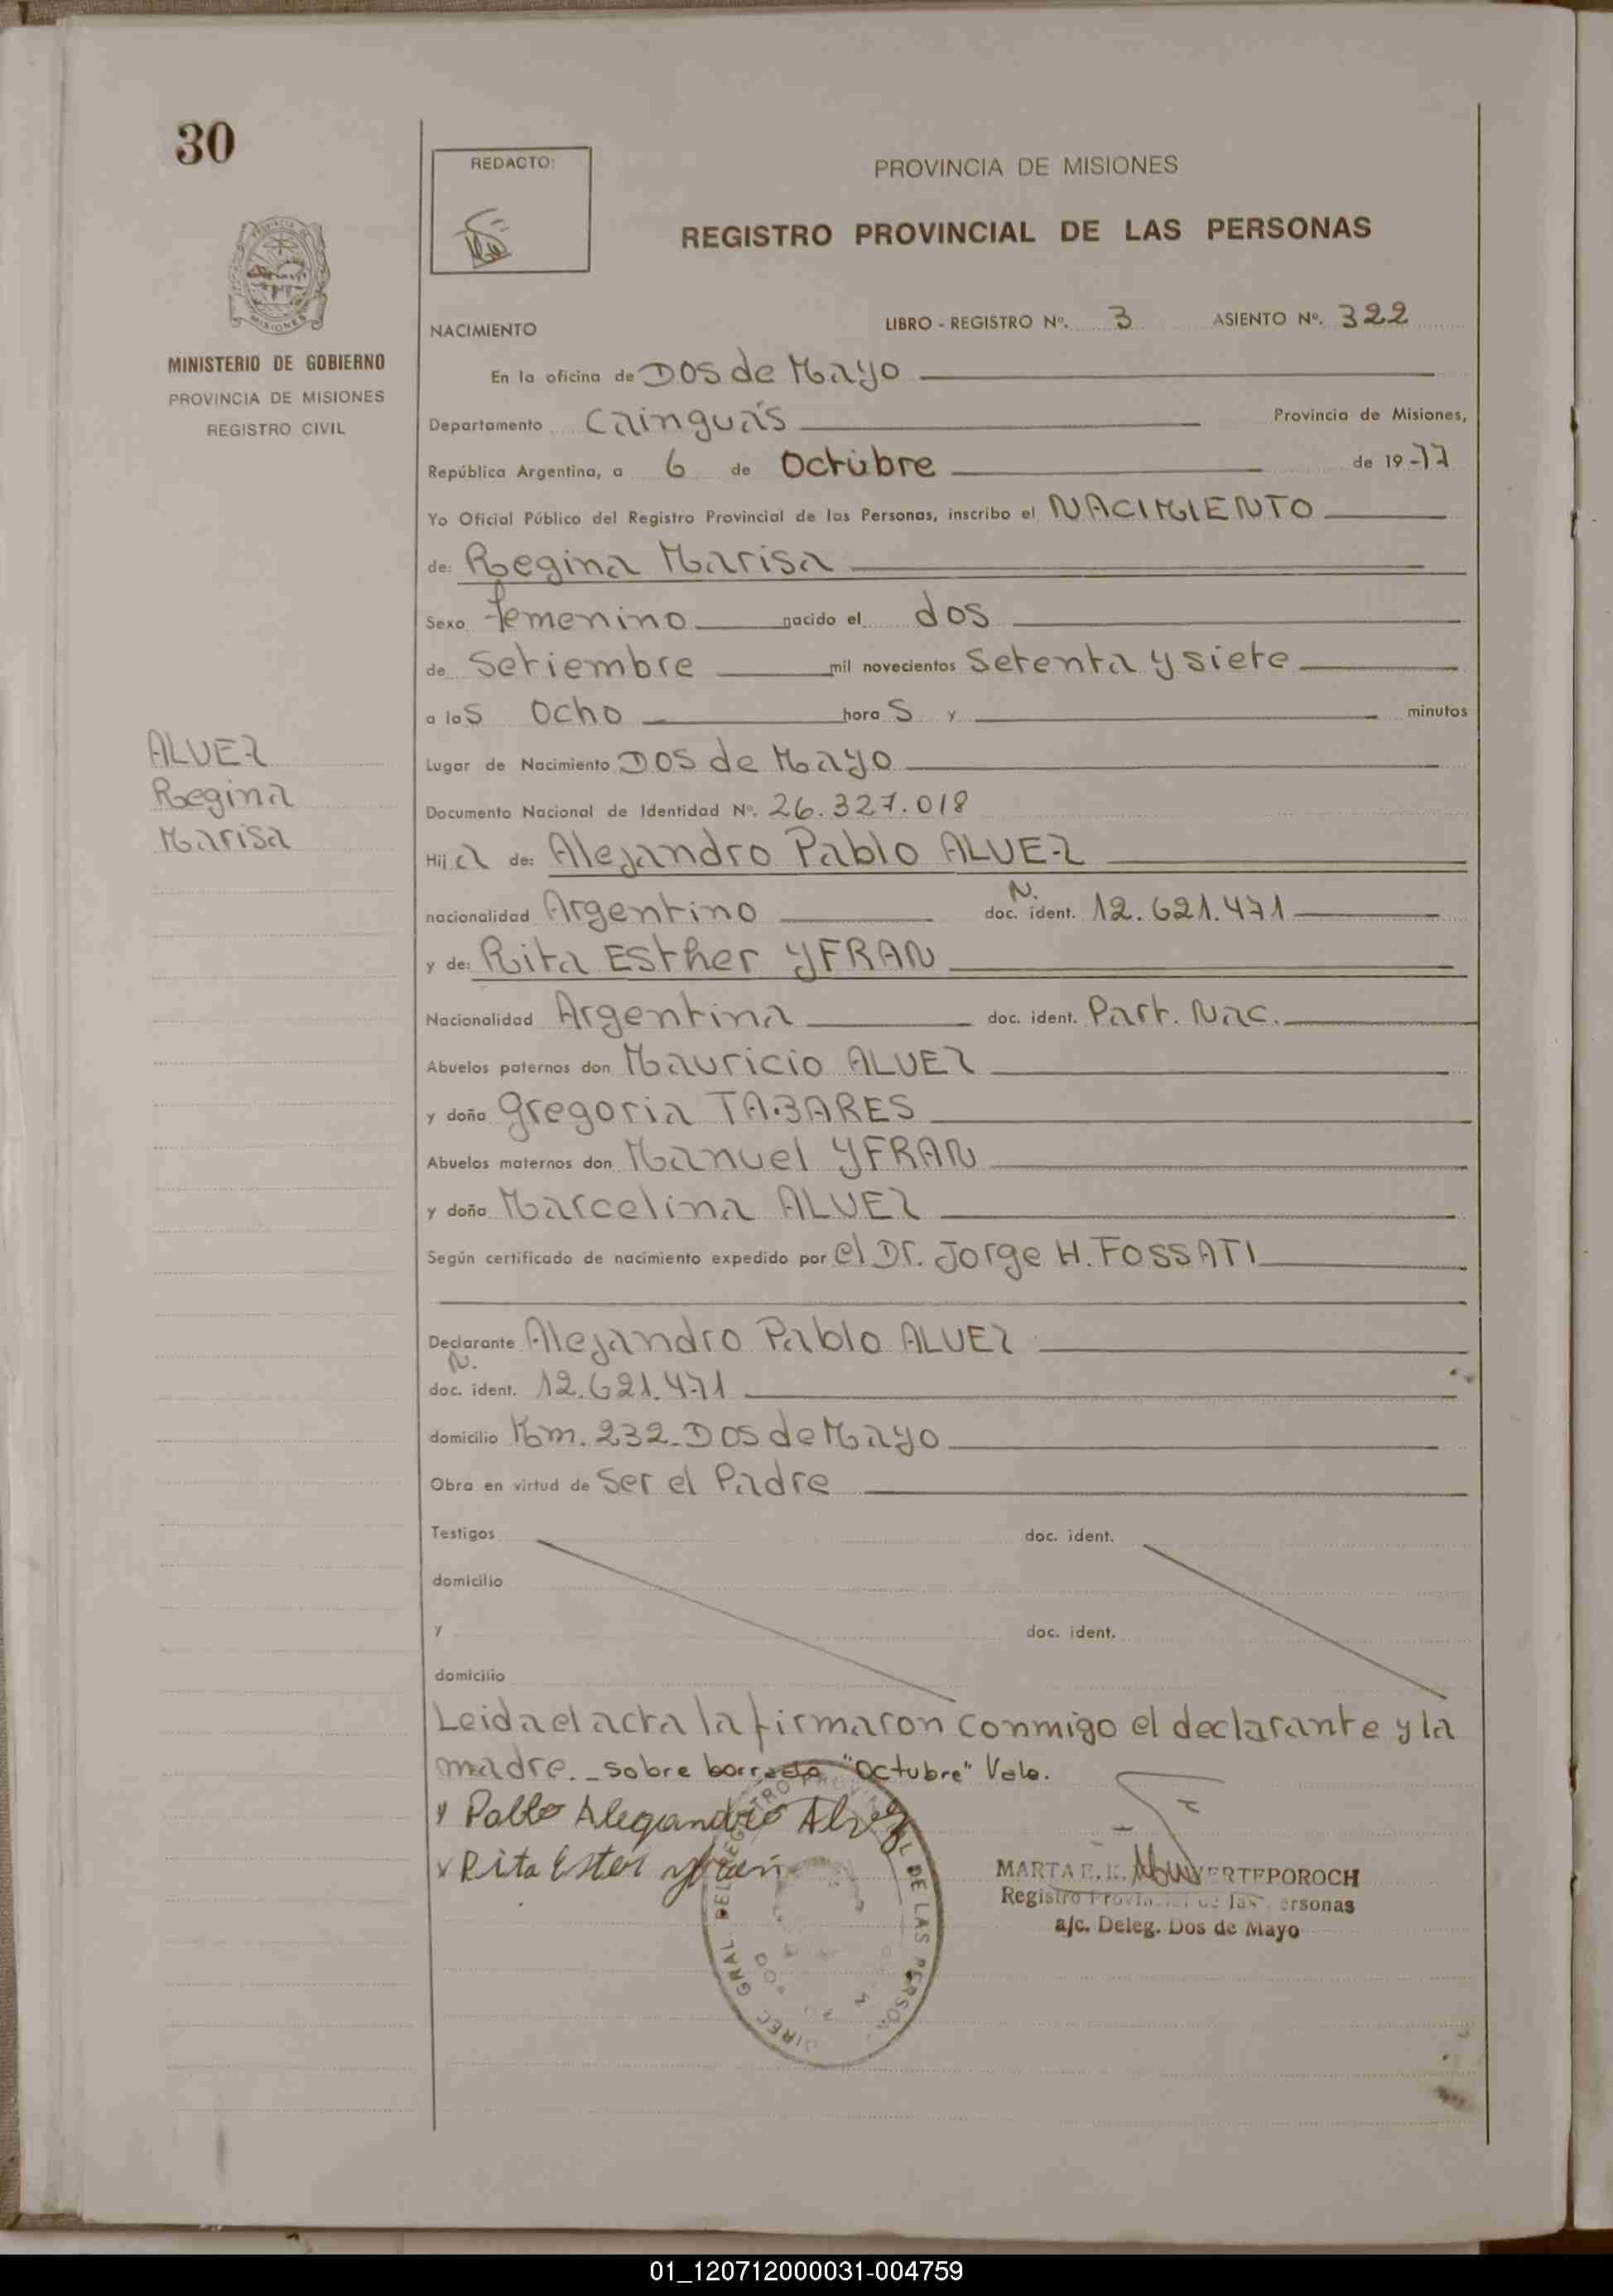 30
REDACTO:
PROVINCIA DE MISIONES
REGISTRO PROVINCIAL DE LAS PERSONAS
MISIONES
MINISTERIO DE GOBIERNO
PROVINCIA DE MISIONES
REGISTRO CIVIL
NACIMIENTO LIBRO - REGISTRO Nº. 3 ASIENTO Nº. 322
En la oficina de Dos de Mayo
Departamento Cainguás Provincia de Misiones,
República Argentina, a 6 de Octubre de 19-77
Yo Oficial Público del Registro Provincial de las Personas, inscribo el NACIMIENTO
de: Regina Marisa
Sexo femenino nacido el dos
de Setiembre mil novecientos Setenta y siete
a las Ocho horas y minutos
ALVEZ
Regina
Marisa
Lugar de Nacimiento Dos de Mayo
Documento Nacional de Identidad Nº. 26.327.018
Hija de: Alejandro Pablo ALVEZ
nacionalidad Argentino doc. N. ident. 12.621.471
y de: Rita Esther YFRAN
Nacionalidad Argentina doc. ident. Part. Nac.
Abuelos paternos don Mauricio ALVEZ
y doña Gregoria TABARES
Abuelos maternos don Manuel YFRAN
y doña Marcelina ALVEZ
Según certificado de nacimiento expedido por el Dr. Jorge H. FOSSATI
Declarante Alejandro Pablo ALVEZ
doc. N. ident. 12.621.471
domicilio Km. 232-Dos de Mayo
Obra en virtud de Ser el Padre
Testigos doc. ident.
domicilio
y doc. ident.
domicilio
Leida el acta la firmaron conmigo el declarante y la
madre._ sobre borrado "Octubre" Vale.
Pablo Alegandro Alvez
Rita Ester yfran
DIREC. GRAL. DEL REGISTRO PROVINCIAL DE LAS PERSON
MARTA E. K.
Registro Provincial de las Personas
a/c. Deleg. Dos de Mayo
01_120712000031-004759